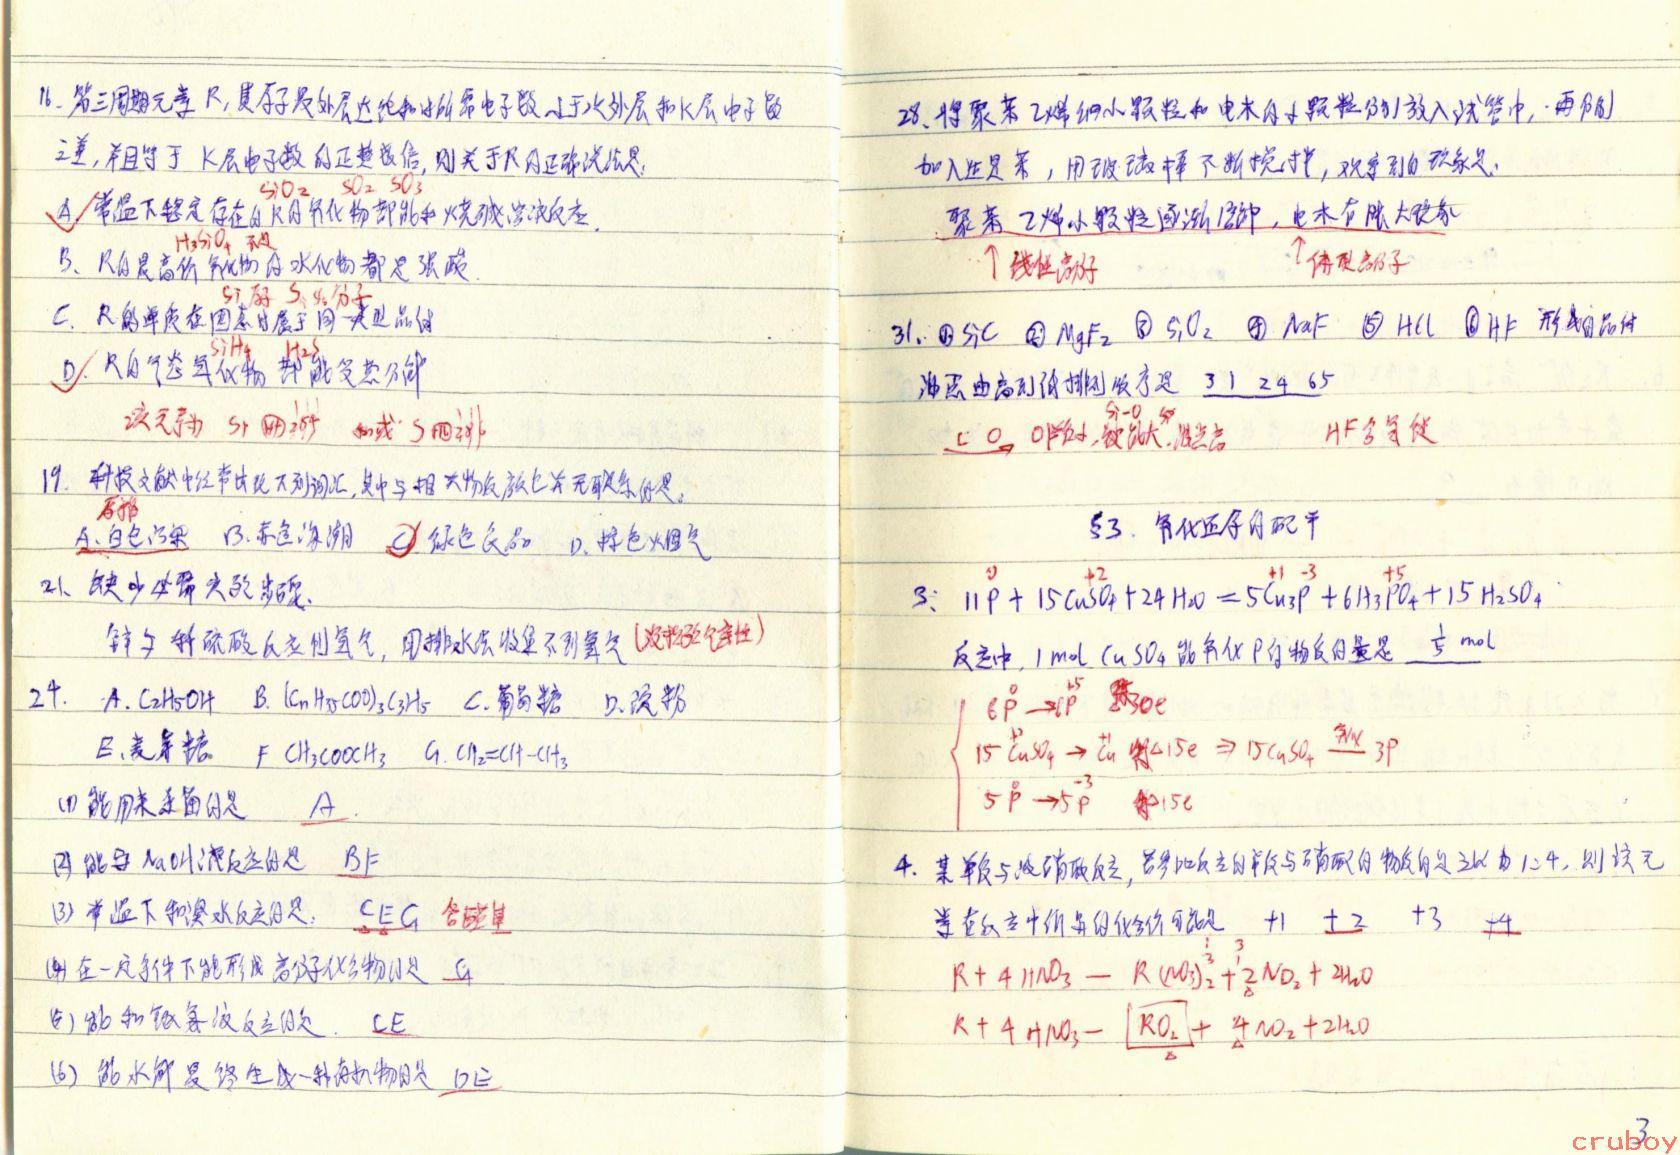 16. 第三周期元素 R, 其原子最外层达饱和时所需电子数小于次外层和K层电子数
之差, 并且等于 K层电子数的正整数倍, 则关于R的正确说法是:
SiO2 SO2 SO3
A. 常温下稳定存在的R的氧化物都能和烧碱溶液反应.
H4SiO4 不是
B、R的最高价氧化物的水化物都是强酸.
Si 原子 S 分子
C. R的单质在固态时属于同一类型晶体
SiH4 H2S
D. R的气态氢化物都能受热分解
该元素为 Si 或 S
19. 科技文献中经常出现下列词汇, 其中与相关物质颜色并无联系的是:
A. 白色污染 B. 赤色海潮 C. 绿色食品 D. 棕色烟气
21. 缺少必需实验步骤.
锌与稀硫酸反应制氢气, 用排水法收集不到氢气 (没检验气密性)
24. A. C2H5OH B. (C17H35COO)3C3H5 C. 葡萄糖 D. 淀粉
E. 麦芽糖 F CH3COOCH3 G. CH2=CH-CH3
(1) 能用来杀菌的是 A.
(2) 能与NaOH溶液反应的是 BF
(3) 常温下和溴水反应的是: CEG 含醛基
(4) 在一定条件下能形成高分子化合物的是 G
(5) 能和银氨液反应的是. CE
(6) 能水解最终生成一种有机物的是 DE
28、将聚苯乙烯细小颗粒和电木的小颗粒分别放入试管中, 再分别
加入足量苯, 用玻璃棒不断搅拌, 观察到的现象是:
聚苯乙烯小颗粒逐渐溶解, 电木有胀大现象
↑线性高分子 ↑体型高分子
31. ① SiC ② MgF2 ③ SiO2 ④ NaF ⑤ HCl ⑥ HF 形成的晶体
沸点由高到低排列顺序是 3 1 2 4 6 5
Si-O
C O → O 键能大, 沸点高 HF含氢键
§3. 氧化还原的配平
0 +2 +1 -3 +5
3: 11P + 15CuSO4 + 24H2O = 5Cu3P + 6H3PO4 + 15H2SO4
反应中, 1 mol CuSO4 能氧化P的物质的量是 1/5 mol
6P → 6P 30e
15CuSO4 → Cu 15e ⇒ 15CuSO4 氧化 3P
5P → 5P 15e
4. 某单质与浓硝酸反应, 若参加反应的单质与硝酸的物质的量之比为1:4, 则该元
素在反应中所显的化合价可能是 +1 +2 +3 +4
R + 4HNO3 — R(NO3)2 + 2NO2 + 2H2O
R + 4HNO3 — RO2 + 4NO2 + 2H2O
3
cruboy